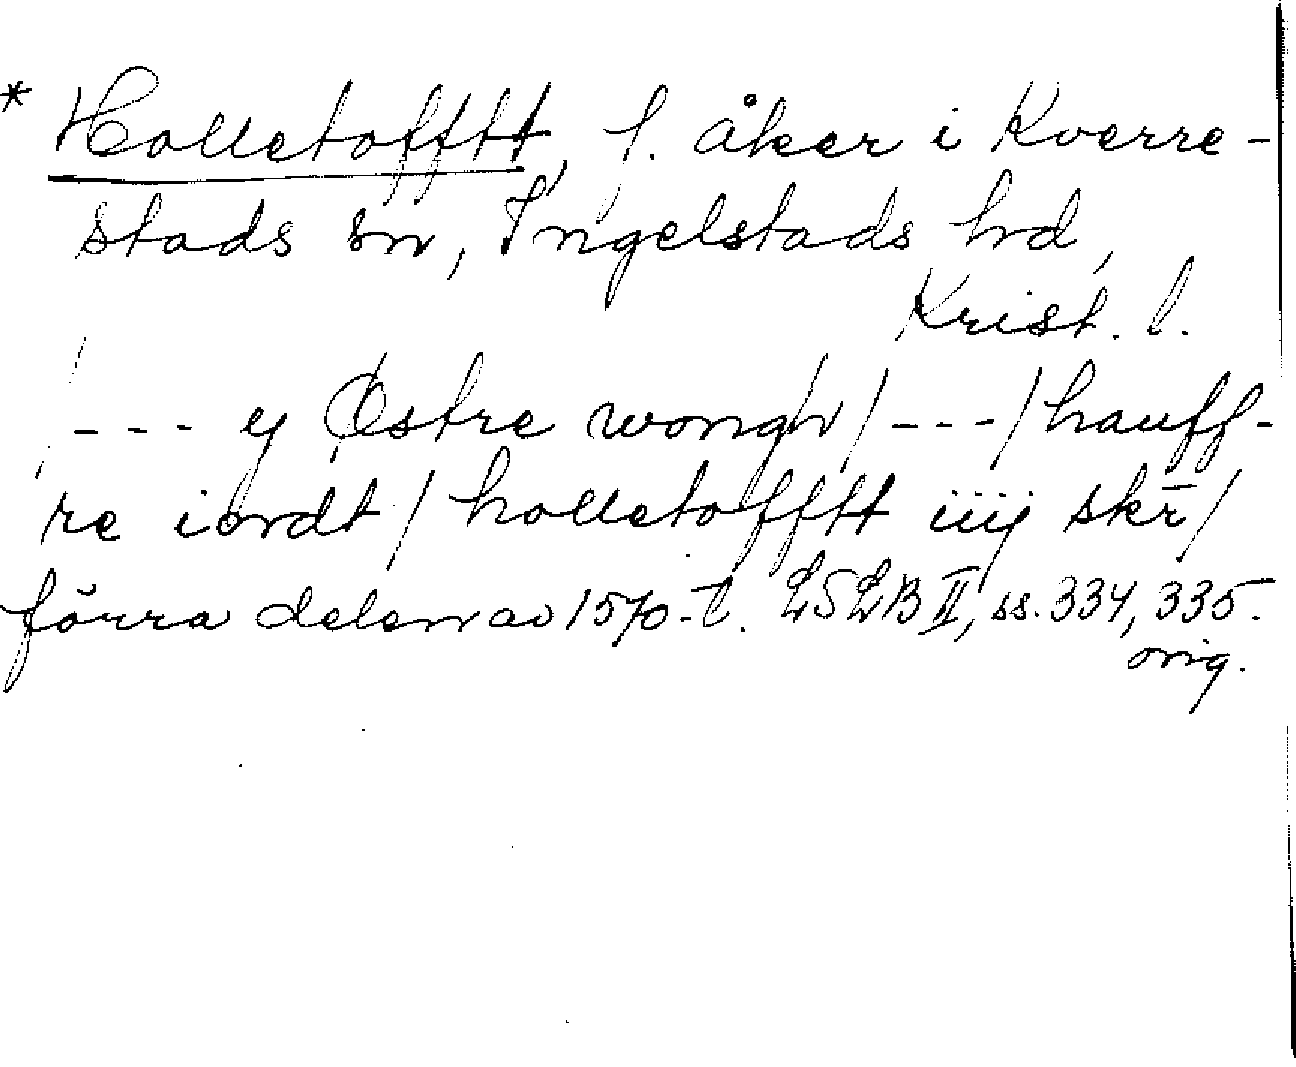 * Holletofftt, f. åker i Kverre-
stads sn, Ingelstads hd,
Krist. l.
--- y Østre wongh / --- / hauff-
re iordt / holletofftt iiij skr̄ /
förra delen av 1570-t. LSLB II, ss. 334, 335.
orig.